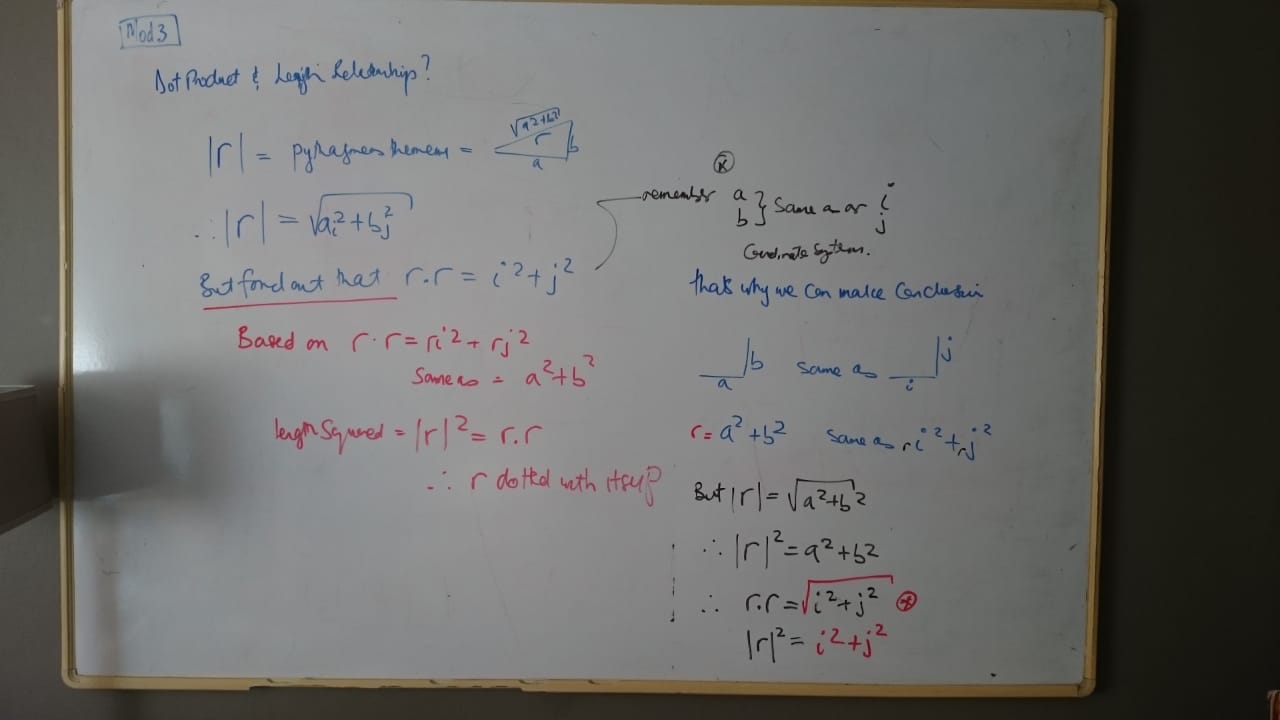 Mod 3
Dot Product & Length Relationship?
|r| = pythagoras theorem =
√a²+b²
r
b
a
∴ |r| = √(aᵢ² + bⱼ²)
But fond out that r.r = i² + j²
Based on r·r = ri² + rj²
Same as = a² + b²
length Squared = |r|² = r.r
∴ r dotted with itself
remember a b } Same a or i j
Coordinate System.
that's why we can make Conclusion
a b same as i j
r = a² + b² same as ri² + rj²
But |r| = √a² + b²
∴ |r|² = a² + b²
∴ r.r = √i² + j²
|r|² = i² + j²